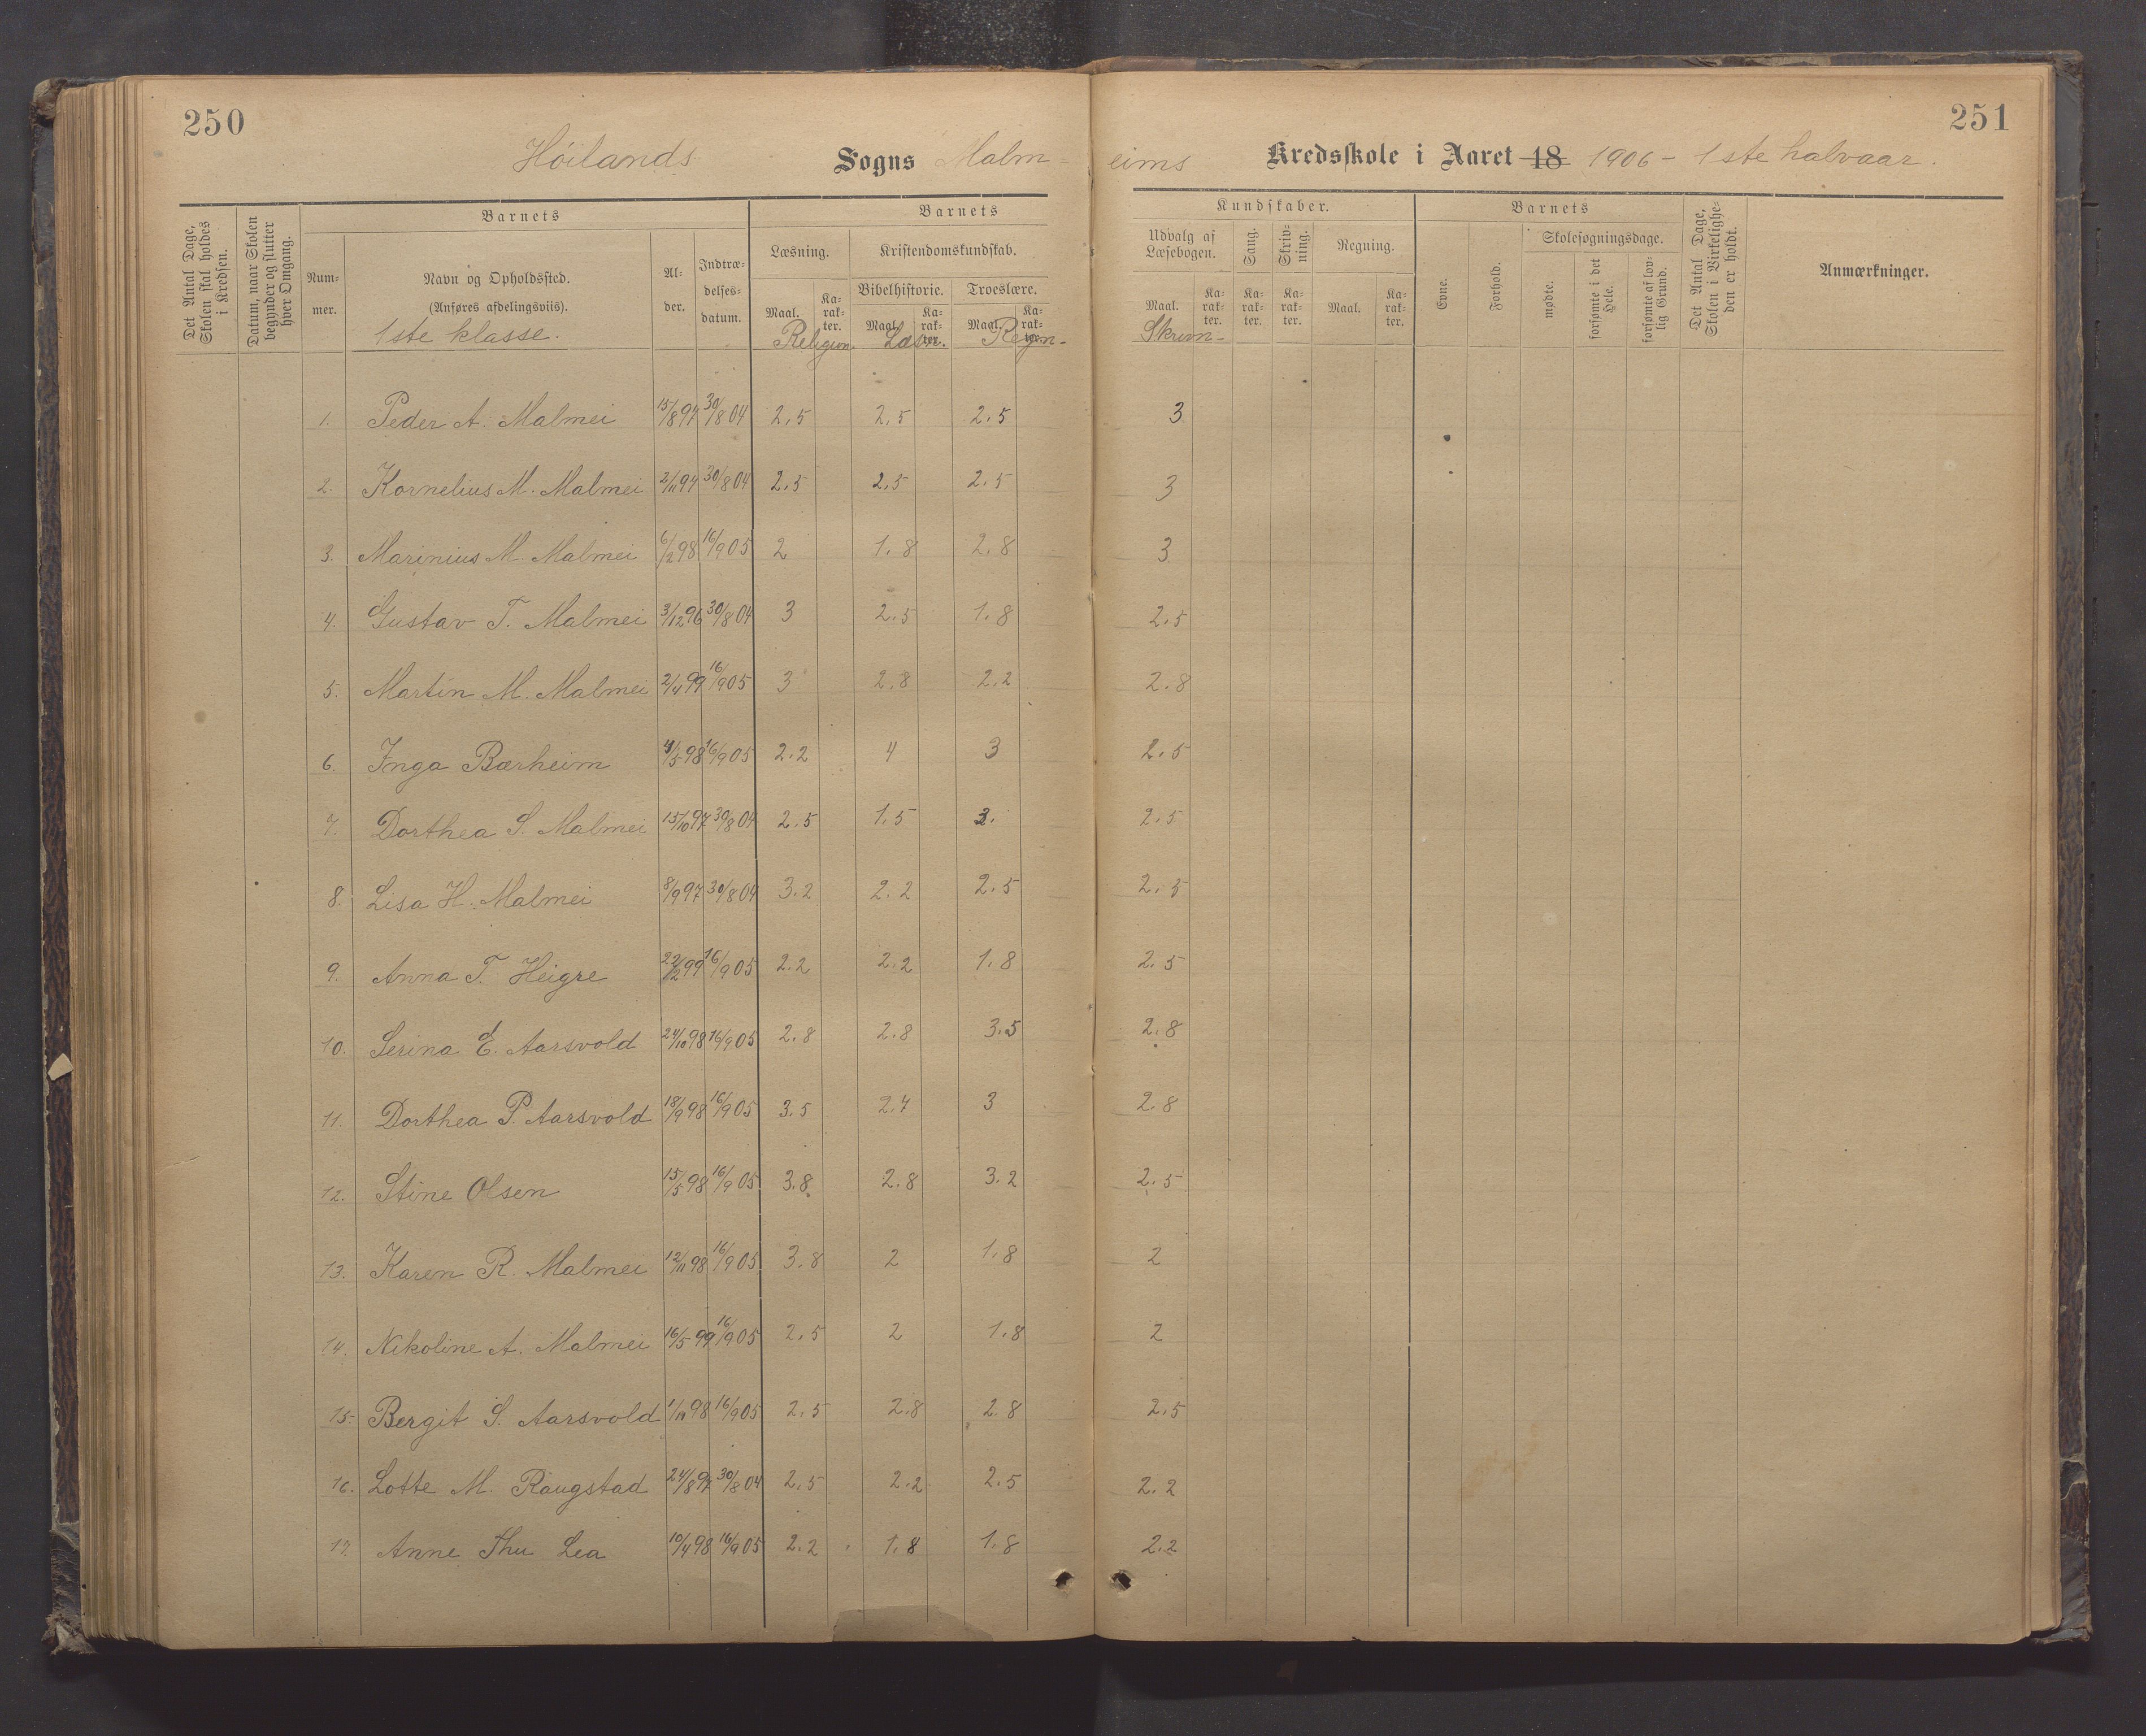 250
251
Höilands Sogns Malm- eims Kredsskole i Aaret 18 1906 - 1ste halvaar.
Det Antal Dage, Skolen skal holdes i Kredsen.
Datum, naar Skolen begynder og slutter hver Omgang.
Barnets
Num- mer.
Navn og Opholdssted.
(Anføres afdelingsviis).
Al- der.
Indtræ- delses- datum.
Barnets
Læsning.
Maal.
Ka- rak- ter.
Kristendomskundskab.
Bibelhistorie.
Maal.
Ka- rak- ter.
Troeslære.
Maal.
Ka- rak- ter.
Kundskaber.
Udvalg af Læsebogen.
Maal.
Ka- rak- ter.
Sang.
Ka- rak- ter.
Skriv- ning.
Ka- rak- ter.
Regning.
Maal.
Ka- rak- ter.
Barnets
Evne.
Forhold.
Skolesøgningsdage.
mødte.
forsømte i det Hele.
forsømte af lov- lig Grund.
Det Antal Dage, Skolen i Virkelighe- den er holdt.
Anmærkninger.
1ste klasse. Religion. Læsn. Regn- Skrivn-
1. Peder A. Malmei 15/8 97 30/8 04 2,5 2,5 2.5 3
2. Kornelius M. Malmei 2/11 97 30/8 04 2.5 2.5 2.5 3
3. Marinius M. Malmei 6/2 98 16/9 05 2 1.8 2.8 3
4. Gustav T. Malmei 3/12 96 30/8 04 3 2.5 1.8 2.5
5. Martin M. Malmei 2/4 99 16/9 05 3 2.8 2.2 2.8
6. Inga Bærheim 4/5 98 16/9 05 2.2 4 3 2.5
7. Dorthea S. Malmei 15/10 97 30/8 04 2.5 1.5 3. 2.5
8. Lisa H. Malmei 8/9 97 30/8 04 3.2 2.2 2.5 2.5
9. Anna T. Heigre 22/2 99 16/9 05 2.2 2.2 1.8 2.5
10. Serina E. Aarsvold 24/10 98 16/9 05 2.8 2.8 3.5 2.8
11. Dorthea P. Aarsvold 18/9 98 16/9 05 3.5 2.7 3 2.8
12. Stine Olsen 15/5 98 16/9 05 3.8 2.8 3.2 2.5
13. Karen R. Malmei 12/11 98 16/9 05 3.8 2 1.8 2
14. Nikoline A. Malmei 16/5 99 16/9 05 2.5 2 1.8 2
15. Bergit S. Aarsvold 98 16/9 05 2.5 2.8 2.8 2.5
16. Lotte M. Raugstad 24/8 97 30/8 04 2.5 2.2 2.5 2.2
17. Anne Thu Lea 10/4 98 16/9 05 2.2 1.8 1.8 2.2